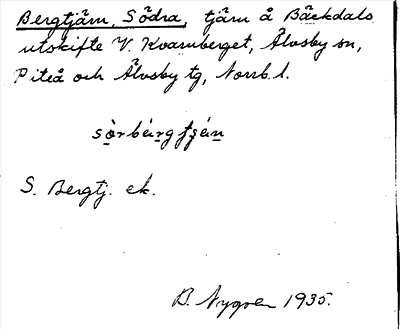 Bergtjärn, Södra, tjärn å Bäckdals
utskifte V. Kvarnberget, Älvsby sn,
Piteå och Älvsby tg, Norrb. l.
sö̀rbä́rgtjä́n
S. Bergtj. ek.
B. Nygren 1935.